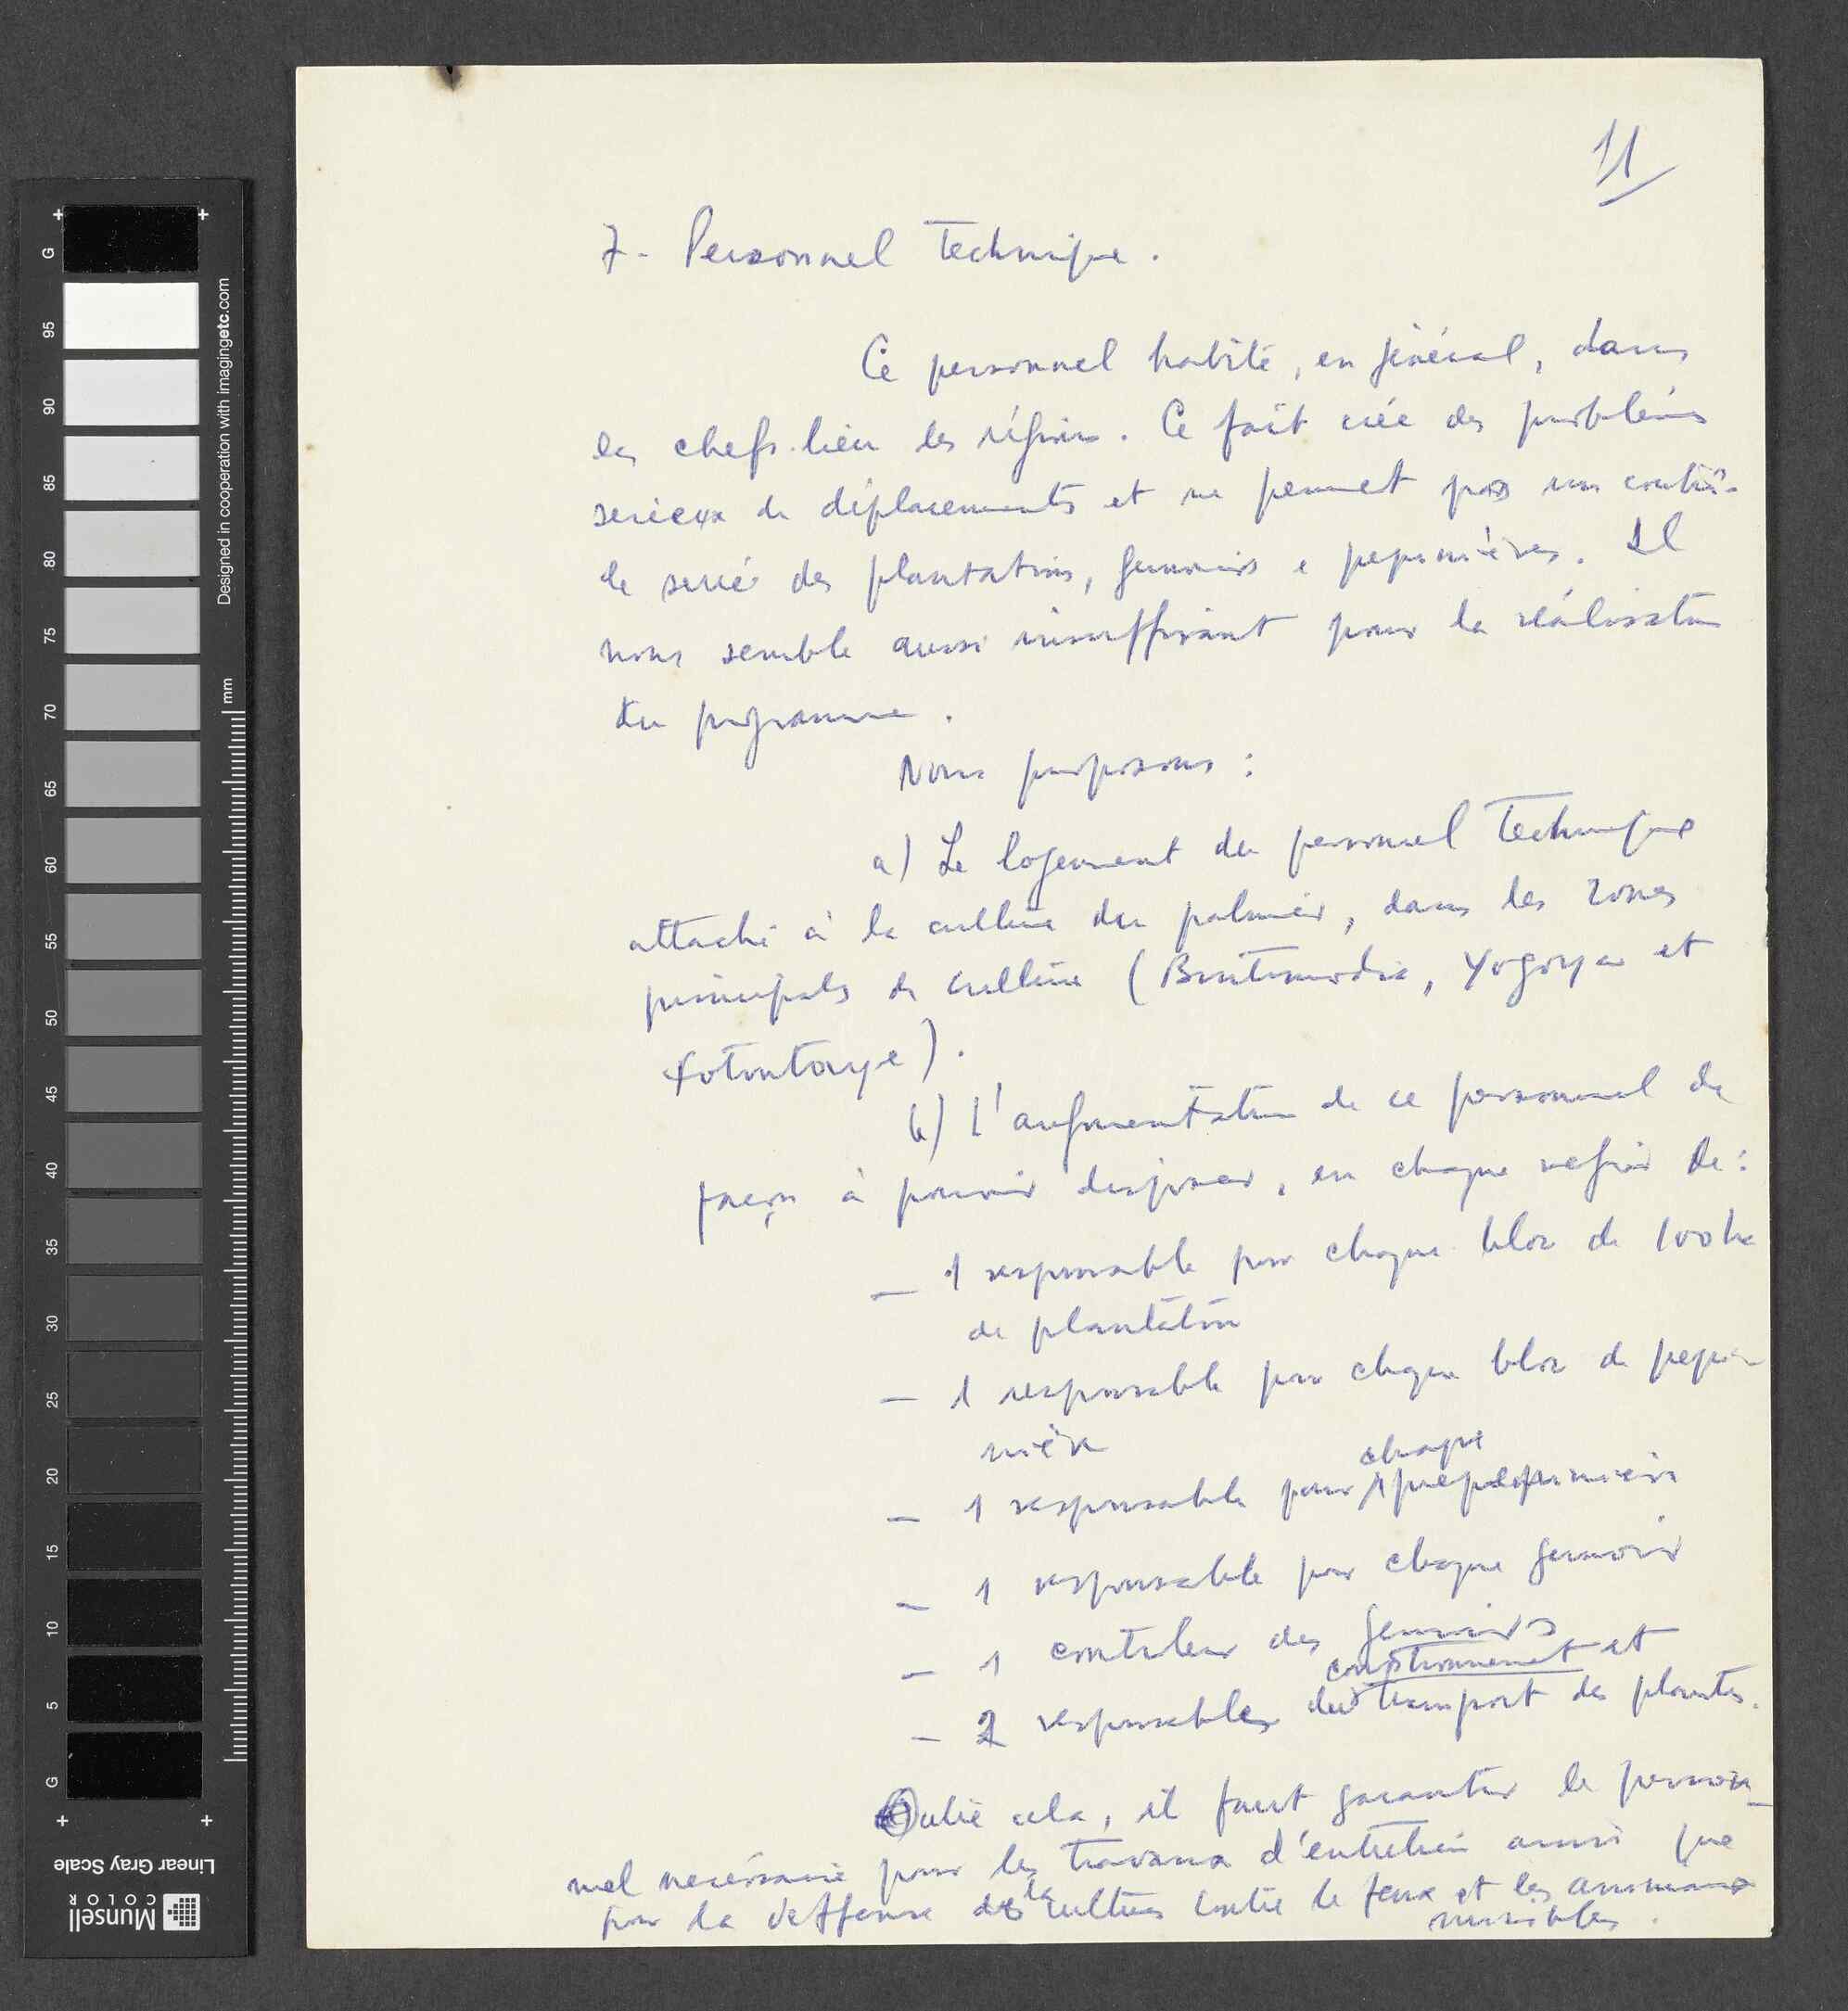 11
7 - Personnel Technique.
Ce personnel habite, en général, dans
les chefs-lieu des régions. Ce fait crée des problèmes
serieux de déplacements et ne permet pas un contrô-
le serré des plantations, germoirs e pepinières. Il
nous semble aussi insuffisant pour la réalisation
du programme.
Nous proposons :
a) Le logement du personnel Technique
attaché à la culture du palmier, dans les zones
principales de culture (Bintimodia, Yogoya et
Kotontaye).
b) L'augmentation de ce personnel de
façon à pouvoir disposer, en chaque region de :
- 1 responsable pour chaque bloc de 100 ha
de plantation
- 1 responsable pour chaque bloc de pepi-
nière
chaque
- 1 responsable pour prépepinière
- 1 responsable pour chaque germoir
- 1 controleur des germoirs
conditionnement et
- 2 responsables du transport des plantes.
Outre cela, il faut garantir le person-
nel necéssaire pour les travaux d'entretien ainsi que
pour la deffense de la culture contre le feux et les animaux
nuisibles.
G 95 90 85 80 75 70 65 60 55 50 45 40 35 30 25 20 15 10 5 G
mm
Designed in cooperation with imagingetc.com
Linear Gray Scale
Munsell
COLOR